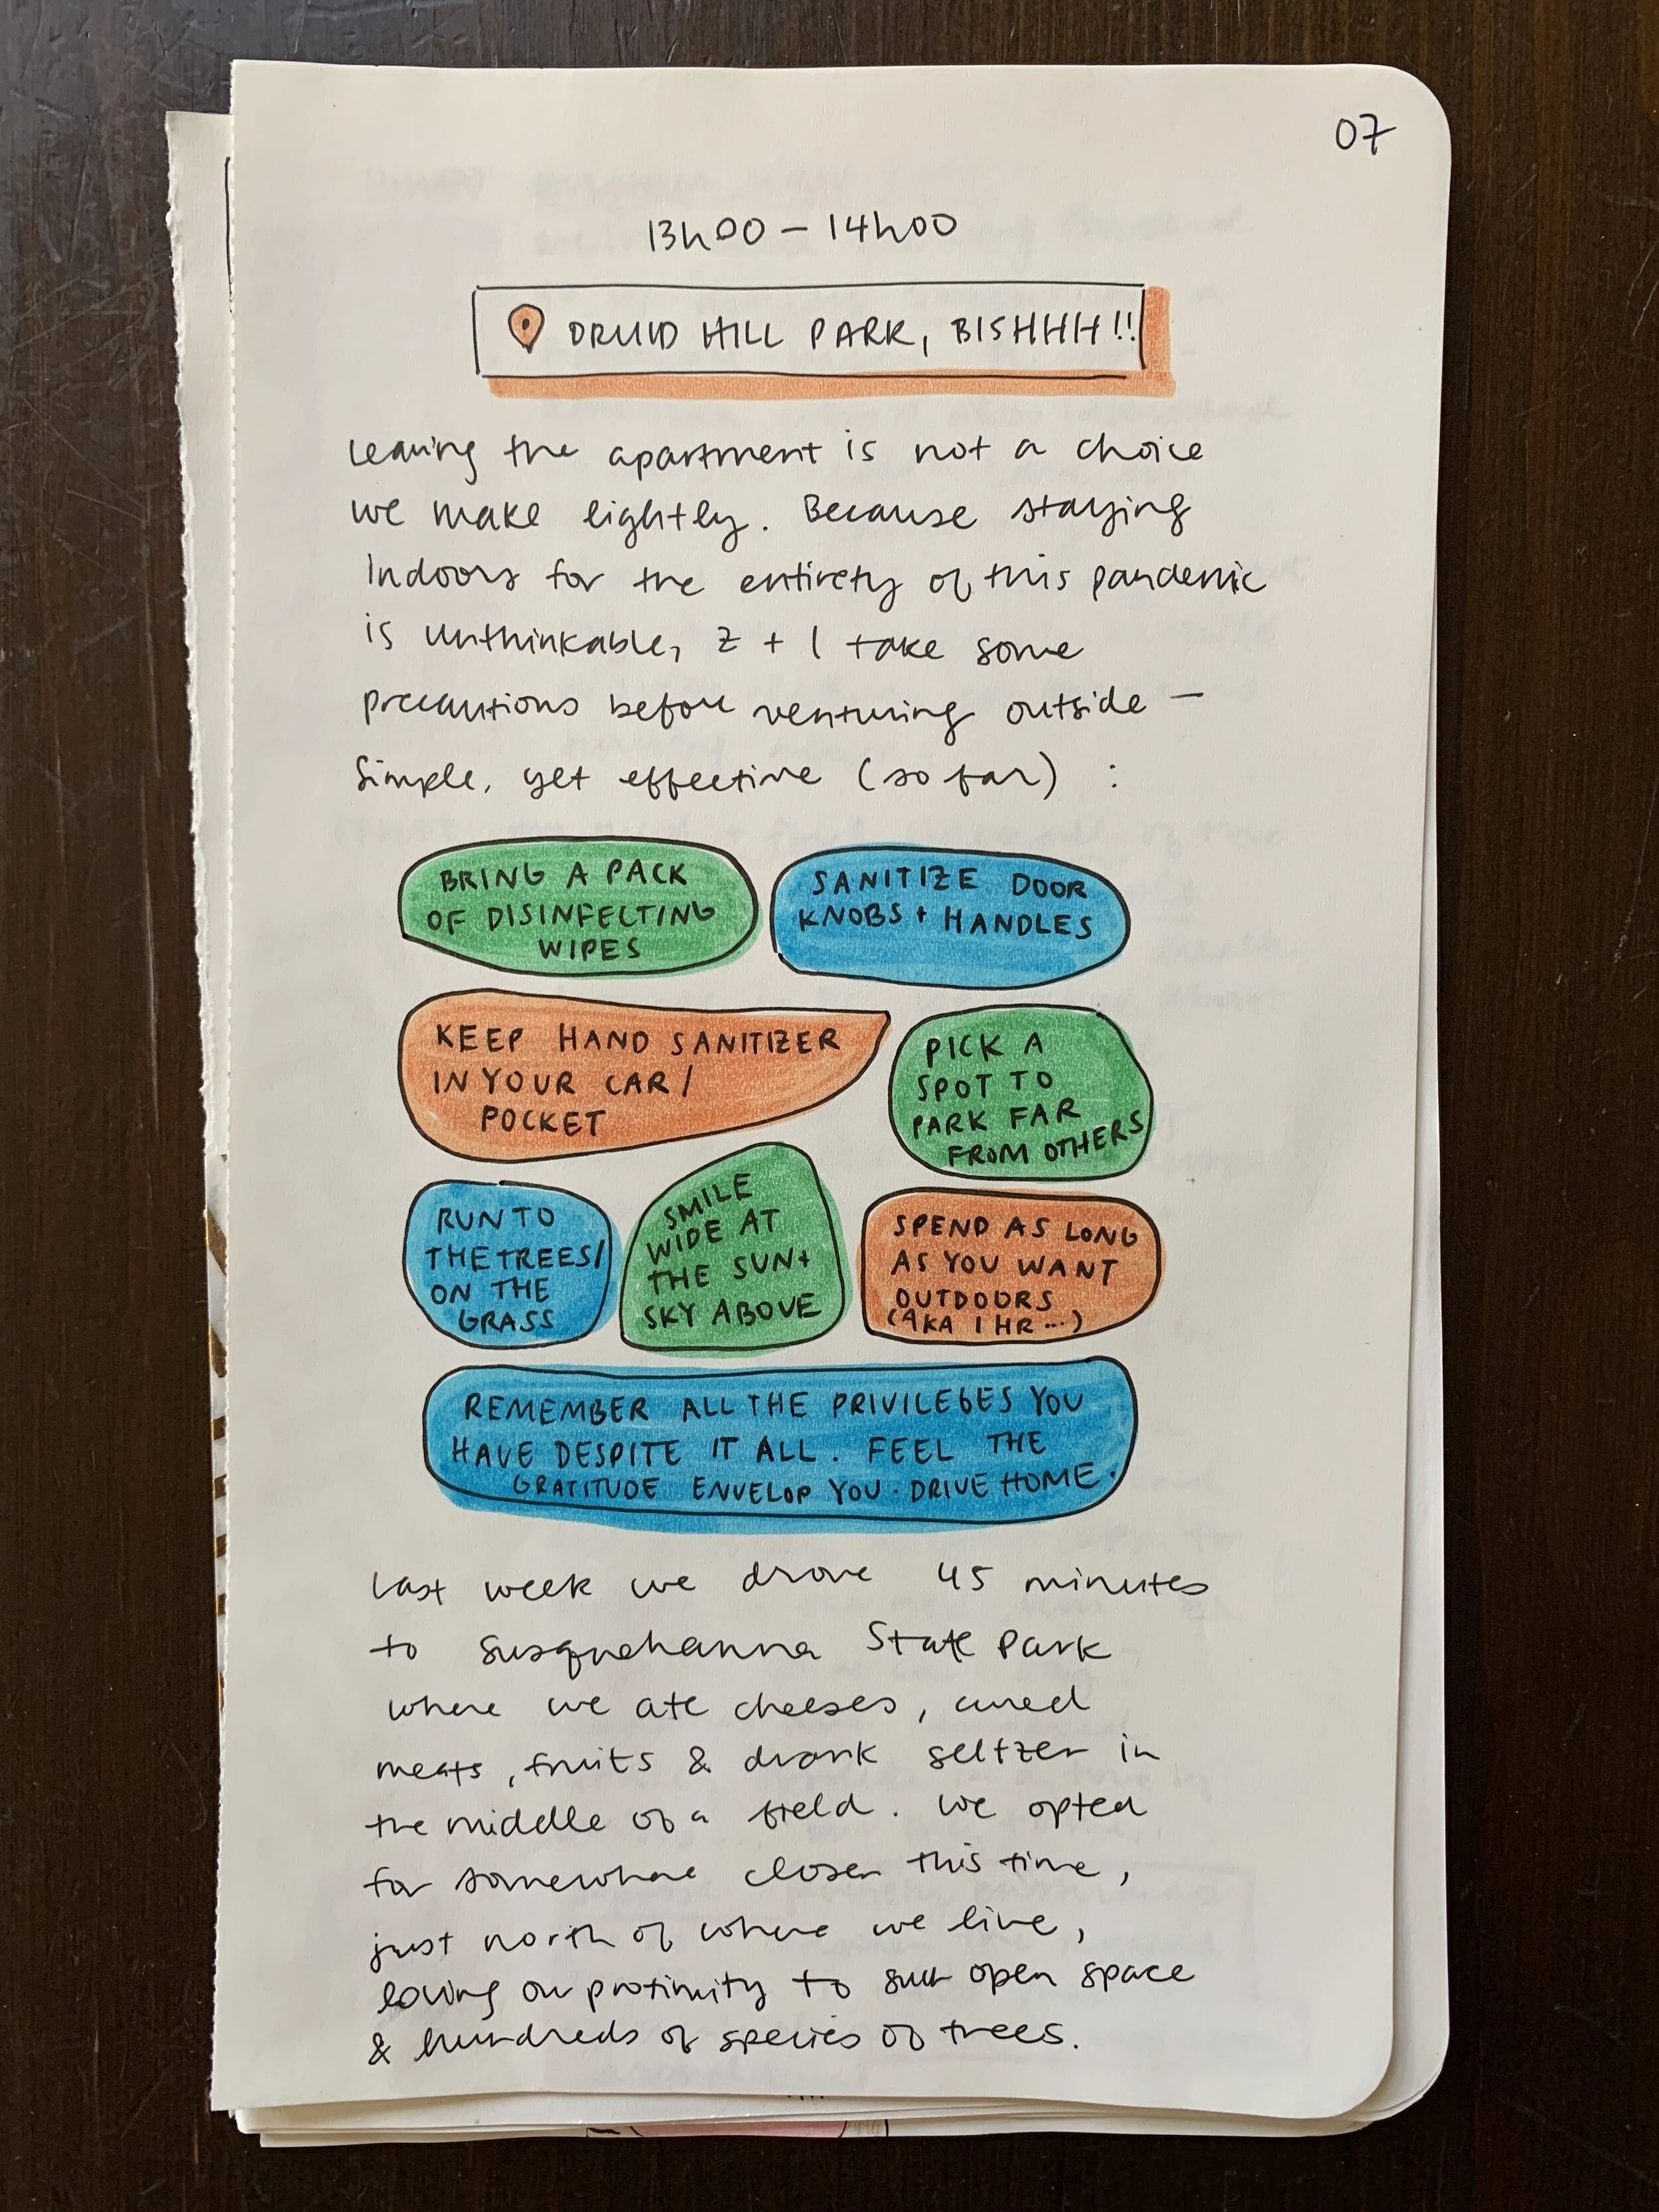 07
13h00 – 14h00
DRUID HILL PARK, BISHHH!!
Leaving the apartment is not a choice
we make lightly. Because staying
Indoors for the entirety of this pandemic
is unthinkable, Z + I take some
precautions before venturing outside –
Simple, yet effective (so far) :
BRING A PACK
OF DISINFECTING
WIPES
SANITIZE DOOR
KNOBS + HANDLES
KEEP HAND SANITIZER
IN YOUR CAR /
POCKET
PICK A
SPOT TO
PARK FAR
FROM OTHERS
RUN TO
THE TREES/
ON THE
GRASS
SMILE
WIDE AT
THE SUN +
SKY ABOVE
SPEND AS LONG
AS YOU WANT
OUTDOORS
(AKA 1 HR ...)
REMEMBER ALL THE PRIVILEGES YOU
HAVE DESPITE IT ALL. FEEL THE
GRATITUDE ENVELOP YOU. DRIVE HOME.
Last week we drove 45 minutes
to Susquehanna State Park
where we ate cheeses, cured
meats, fruits & drank seltzer in
the middle of a field. We opted
for somewhere closer this time,
just north of where we live,
loving our proximity to such open space
& hundreds of species of trees.